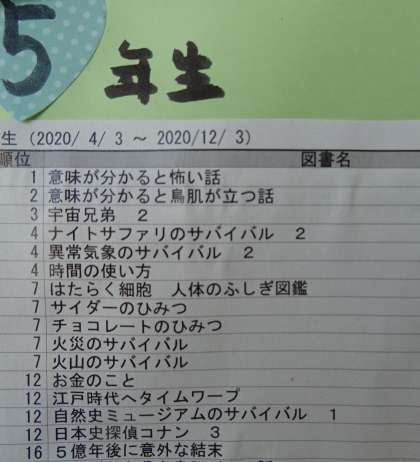 5
年生
生 (2020/ 4/ 3 ～ 2020/12/ 3)
順位 図書名
1 意味が分かると怖い話
2 意味が分かると鳥肌が立つ話
3 宇宙兄弟 2
4 ナイトサファリのサバイバル 2
4 異常気象のサバイバル 2
4 時間の使い方
7 はたらく細胞 人体のふしぎ図鑑
7 サイダーのひみつ
7 チョコレートのひみつ
7 火災のサバイバル
7 火山のサバイバル
12 お金のこと
12 江戸時代へタイムワープ
12 自然史ミュージアムのサバイバル 1
12 日本史探偵コナン 3
16 5億年後に意外な結末